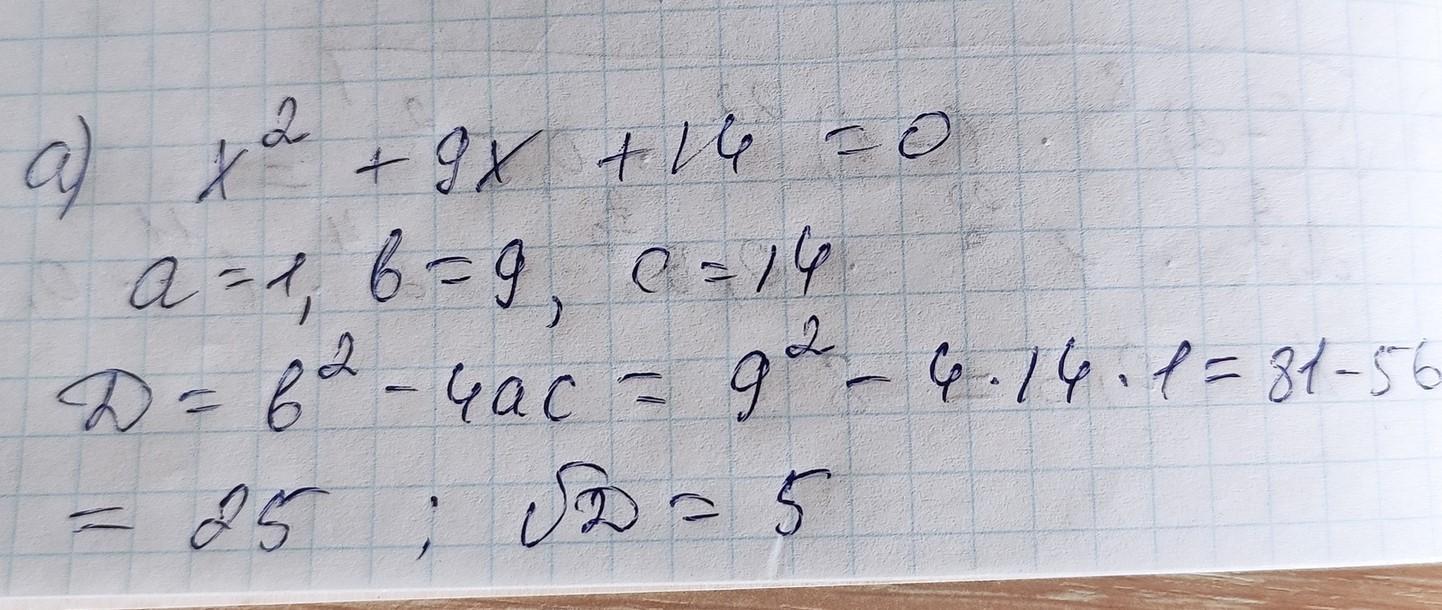 а) x² + 9x + 14 = 0
a = 1, b = 9, c = 14
D = b² - 4ac = 9² - 4·14·1 = 81 - 56
= 25 ; √D = 5